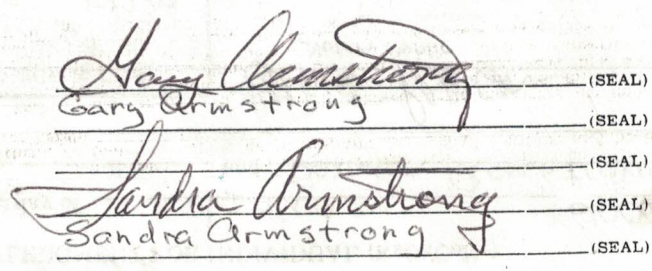 Gary Armstrong (SEAL)
Gary Armstrong (SEAL)
(SEAL)
Sandra Armstrong (SEAL)
Sandra Armstrong (SEAL)